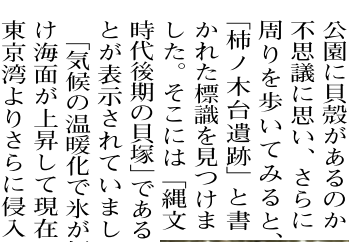 公園に貝殻があるのか
不思議に思い、さらに
周りを歩いてみると、
「柿ノ木台遺跡」と書
かれた標識を見つけま
した。そこには「縄文
時代後期の貝塚」である
とが表示されていまし
「気候の温暖化で氷が
け海面が上昇して現在
東京湾よりさらに侵入